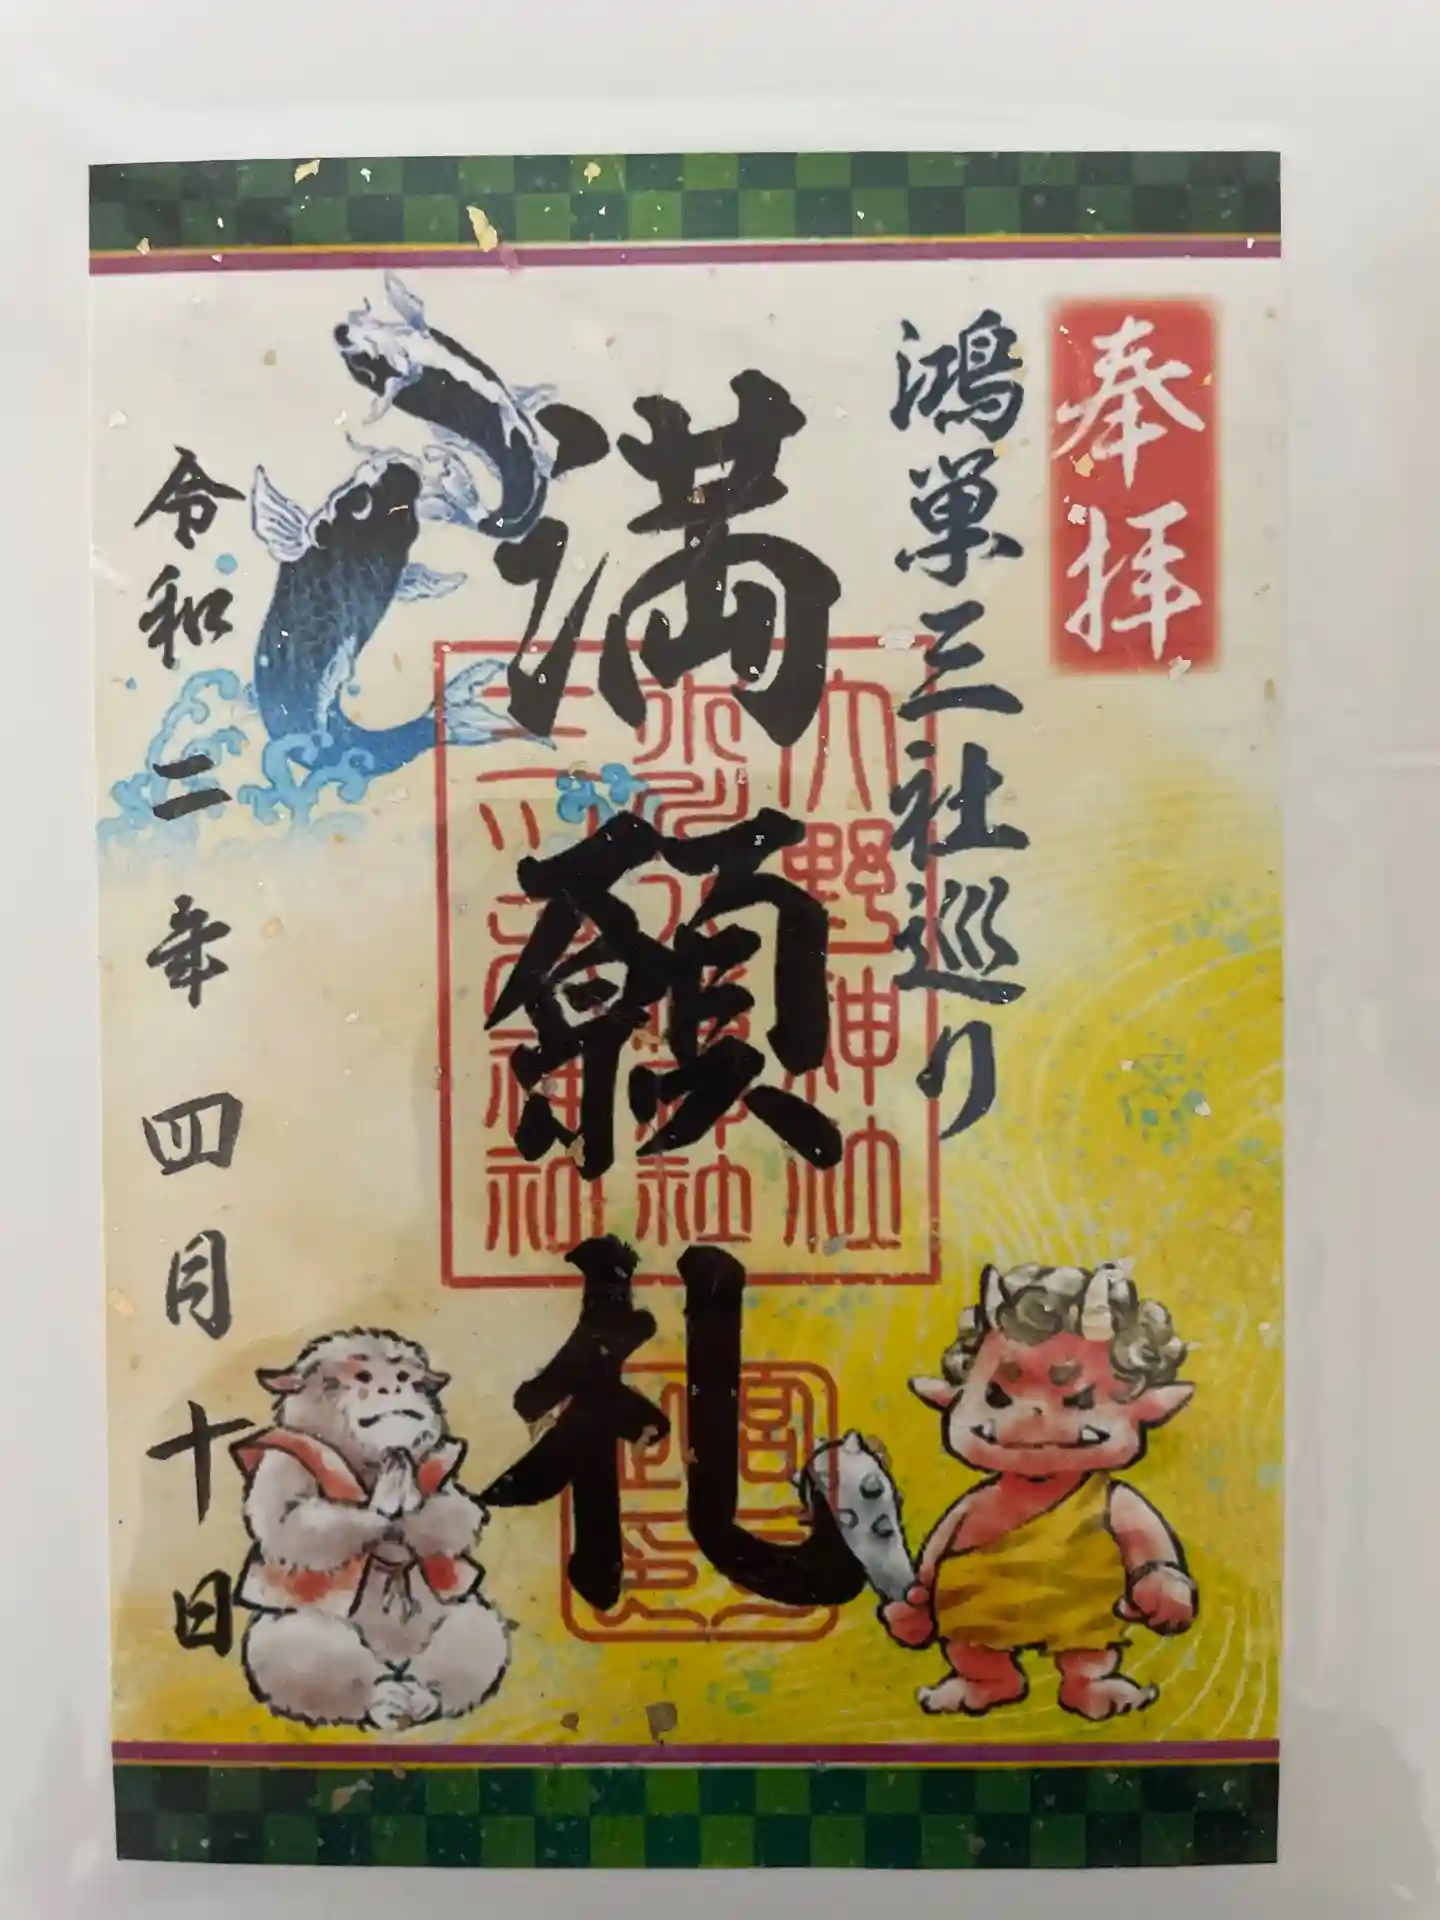 奉拝
鴻巣三社巡り
満願札
大野神社
氷川八幡神社
三ツ木神社
令和二年四月十日